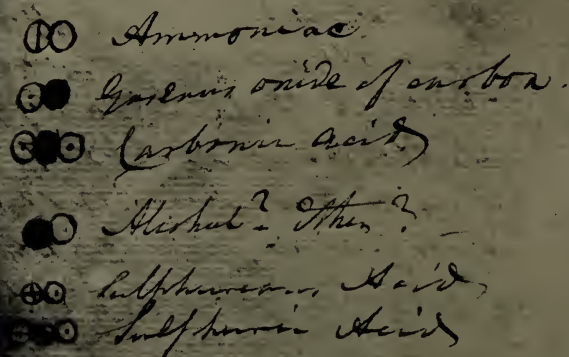 Ammoniac
Gaseous oxide of carbon.
Carbonic acid
Alcohol? Ether?
Sulphureous Acid
Sulphuric Acid